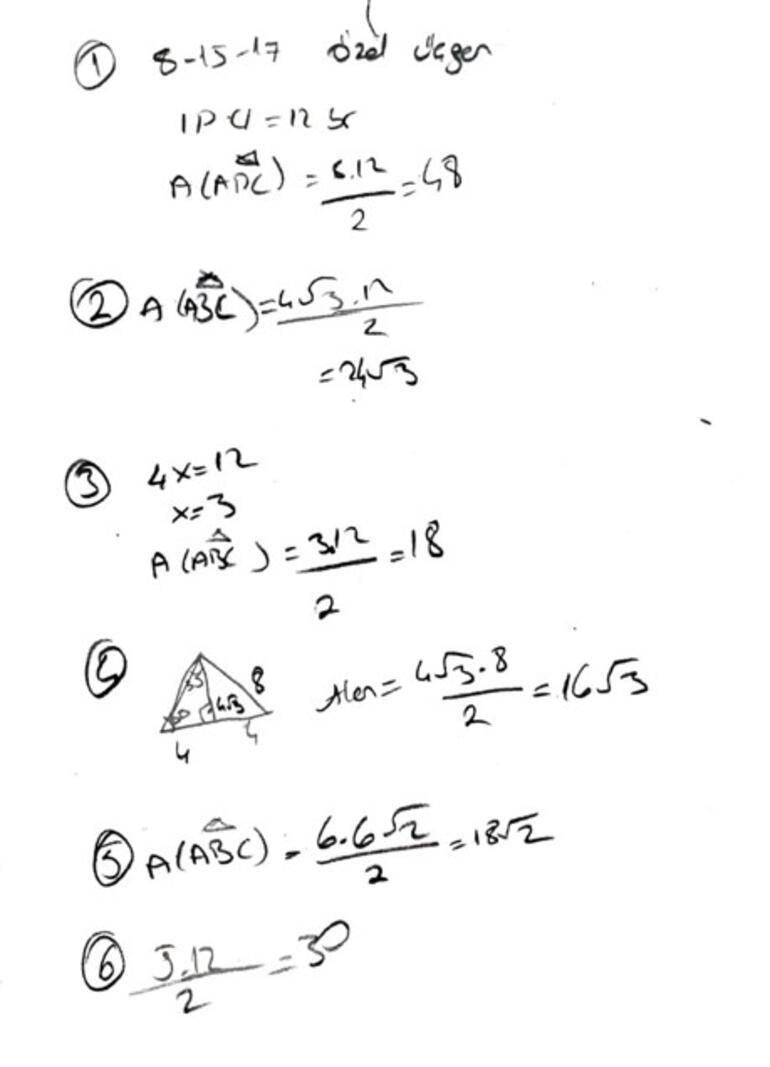 ① 8-15-17 özel üçgen
|DC|=12 br
A(ADC) = 8.12/2 = 48
② A(ABC) = 4√3.12/2
= 24√3
③ 4x=12
x=3
A(ABC) = 3.12/2 = 18
④ 8 4√3 4 4 Alan = 4√3.8/2 = 16√3
⑤ A(ABC) = 6.6√2/2 = 18√2
⑥ 5.12/2 = 30